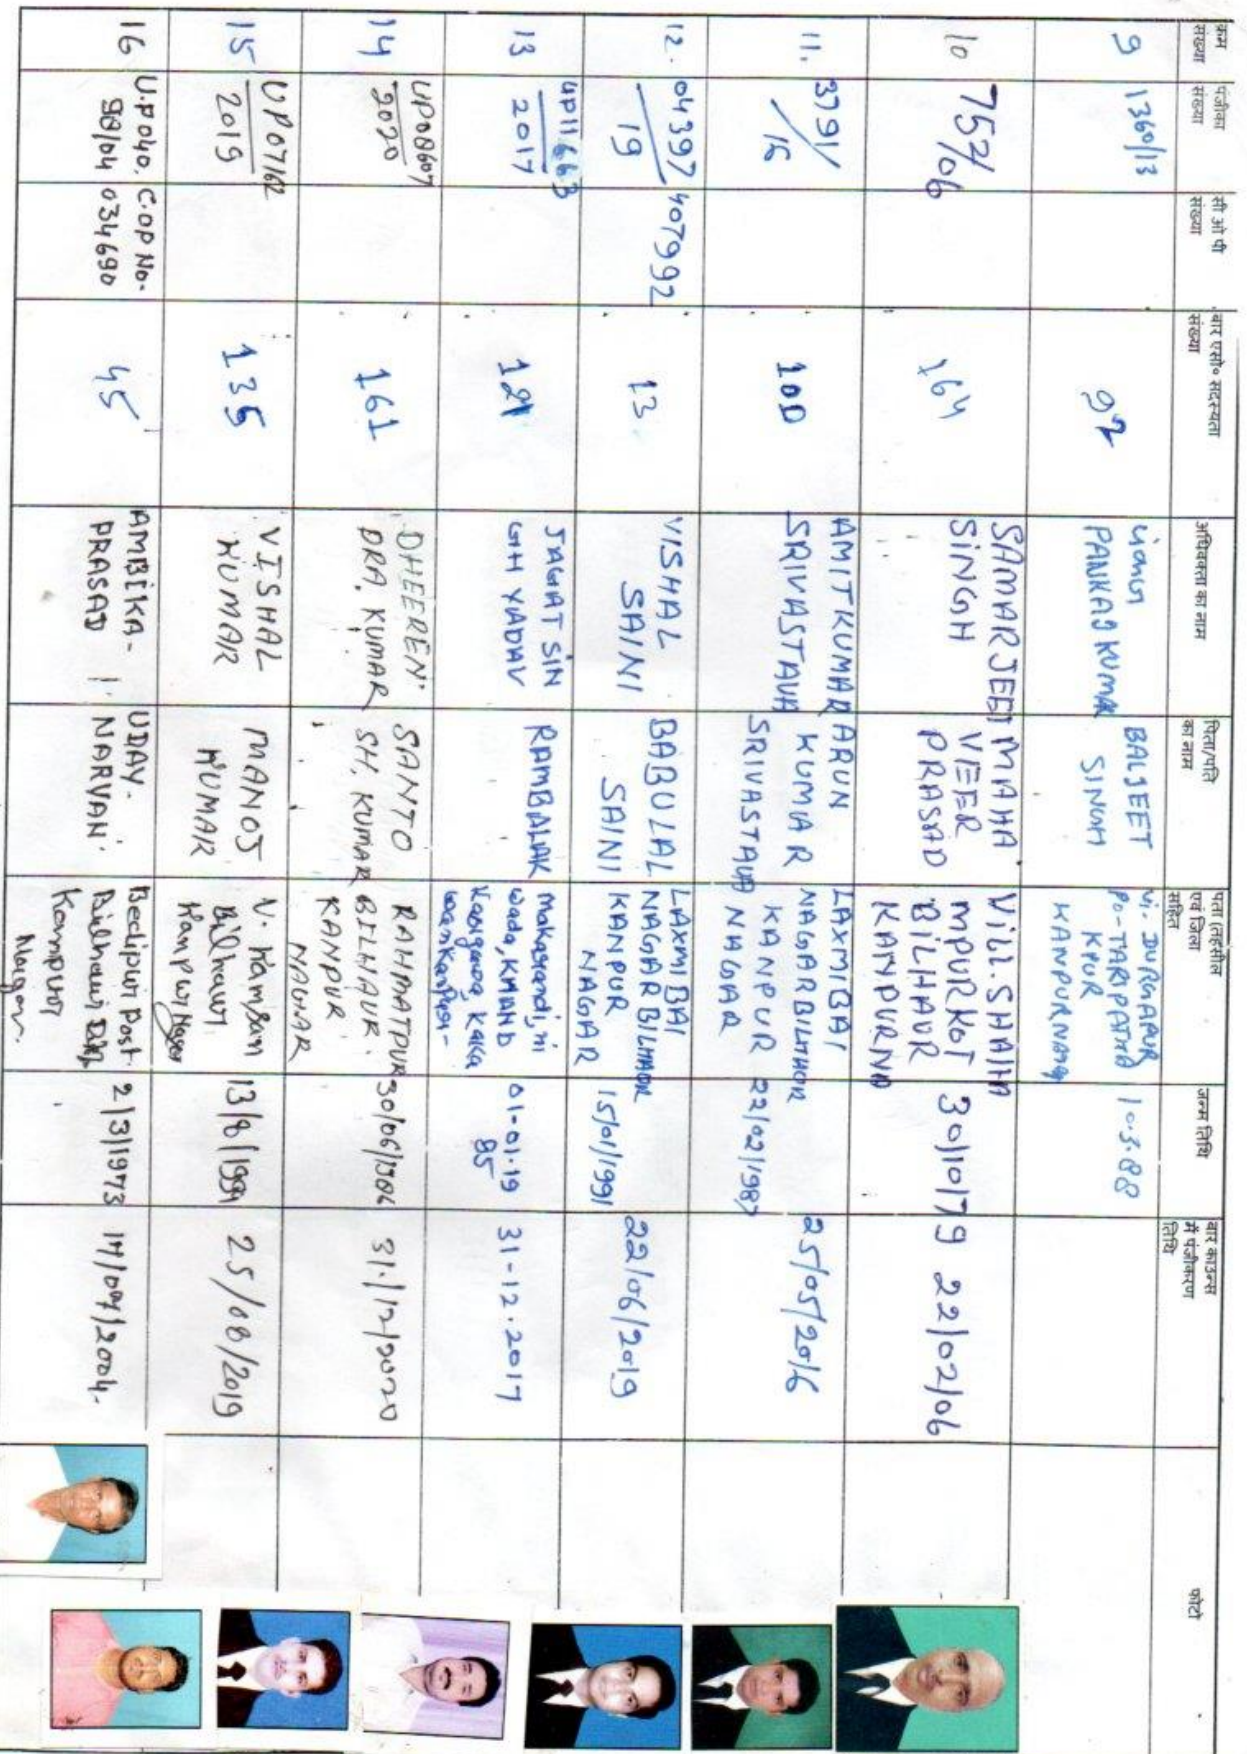 क्रम संख्या
पंजीका संख्या
सी ओ पी संख्या
बार एसो० सदस्यता संख्या
अधिवक्ता का नाम
पिता/पति का नाम
पता (तहसील एवं जिला सहित
जन्म तिथि
बार काउन्स में पंजीकरण तिथि
फोटो
9
1360/13
92
PANKAJ KUMAR
BALJEET
SINGH
Vi. DURGAPUR
PO-TARIPATHA
KPUR
KANPURNAGAR
10.3.88
10
752/06
164
SAMARJEET
SINGH
MAHA
VEER
PRASAD
VILL.SHAHA
MPURKOT
BILHAUR
KANPURNA
30/10/79
22/02/06
11.
3791/
16
100
AMITKUMAR
SRIVASTAVA
ARUN
KUMAR
SRIVASTAVA
LAXMIBAI
NAGARBILHOR
KANPUR
NAGAR
22/02/1987
25/05/2016
12.
04397/
19
407992
13
VISHAL
SAINI
BABULAL
SAINI
LAXMI BAI
NAGAR BILHOR
KANPUR
NAGAR
15/01/1991
22/06/2019
13
UP11663
2017
121
JAGAT SIN
GH YADAV
RAMBALAK
Makarandi, ni
wada, KHAND
01-01-19
85
31-12-2017
14
UP08607
2020
161
DHEEREN
DRA. KUMAR
SANTO
SH. KUMAR
RAHMATPUR
BILHAUR.
KANPUR
NAGAR
30/06/1986
31/12/2020
15
UP07162
2019
135
VISHAL
KUMAR
MANOJ
KUMAR
V. Kamsan
Bilhaur
Kanpur Nagar
13/8/1991
25/08/2019
16
U.P040.
98/04
C.OP No-
034690
45
AMBIKA-
PRASAD
UDAY.
NARYAN
Bedipur Post
Bilhaur
Kanpur
Nagar.
2/3/1973
17/07/2004.